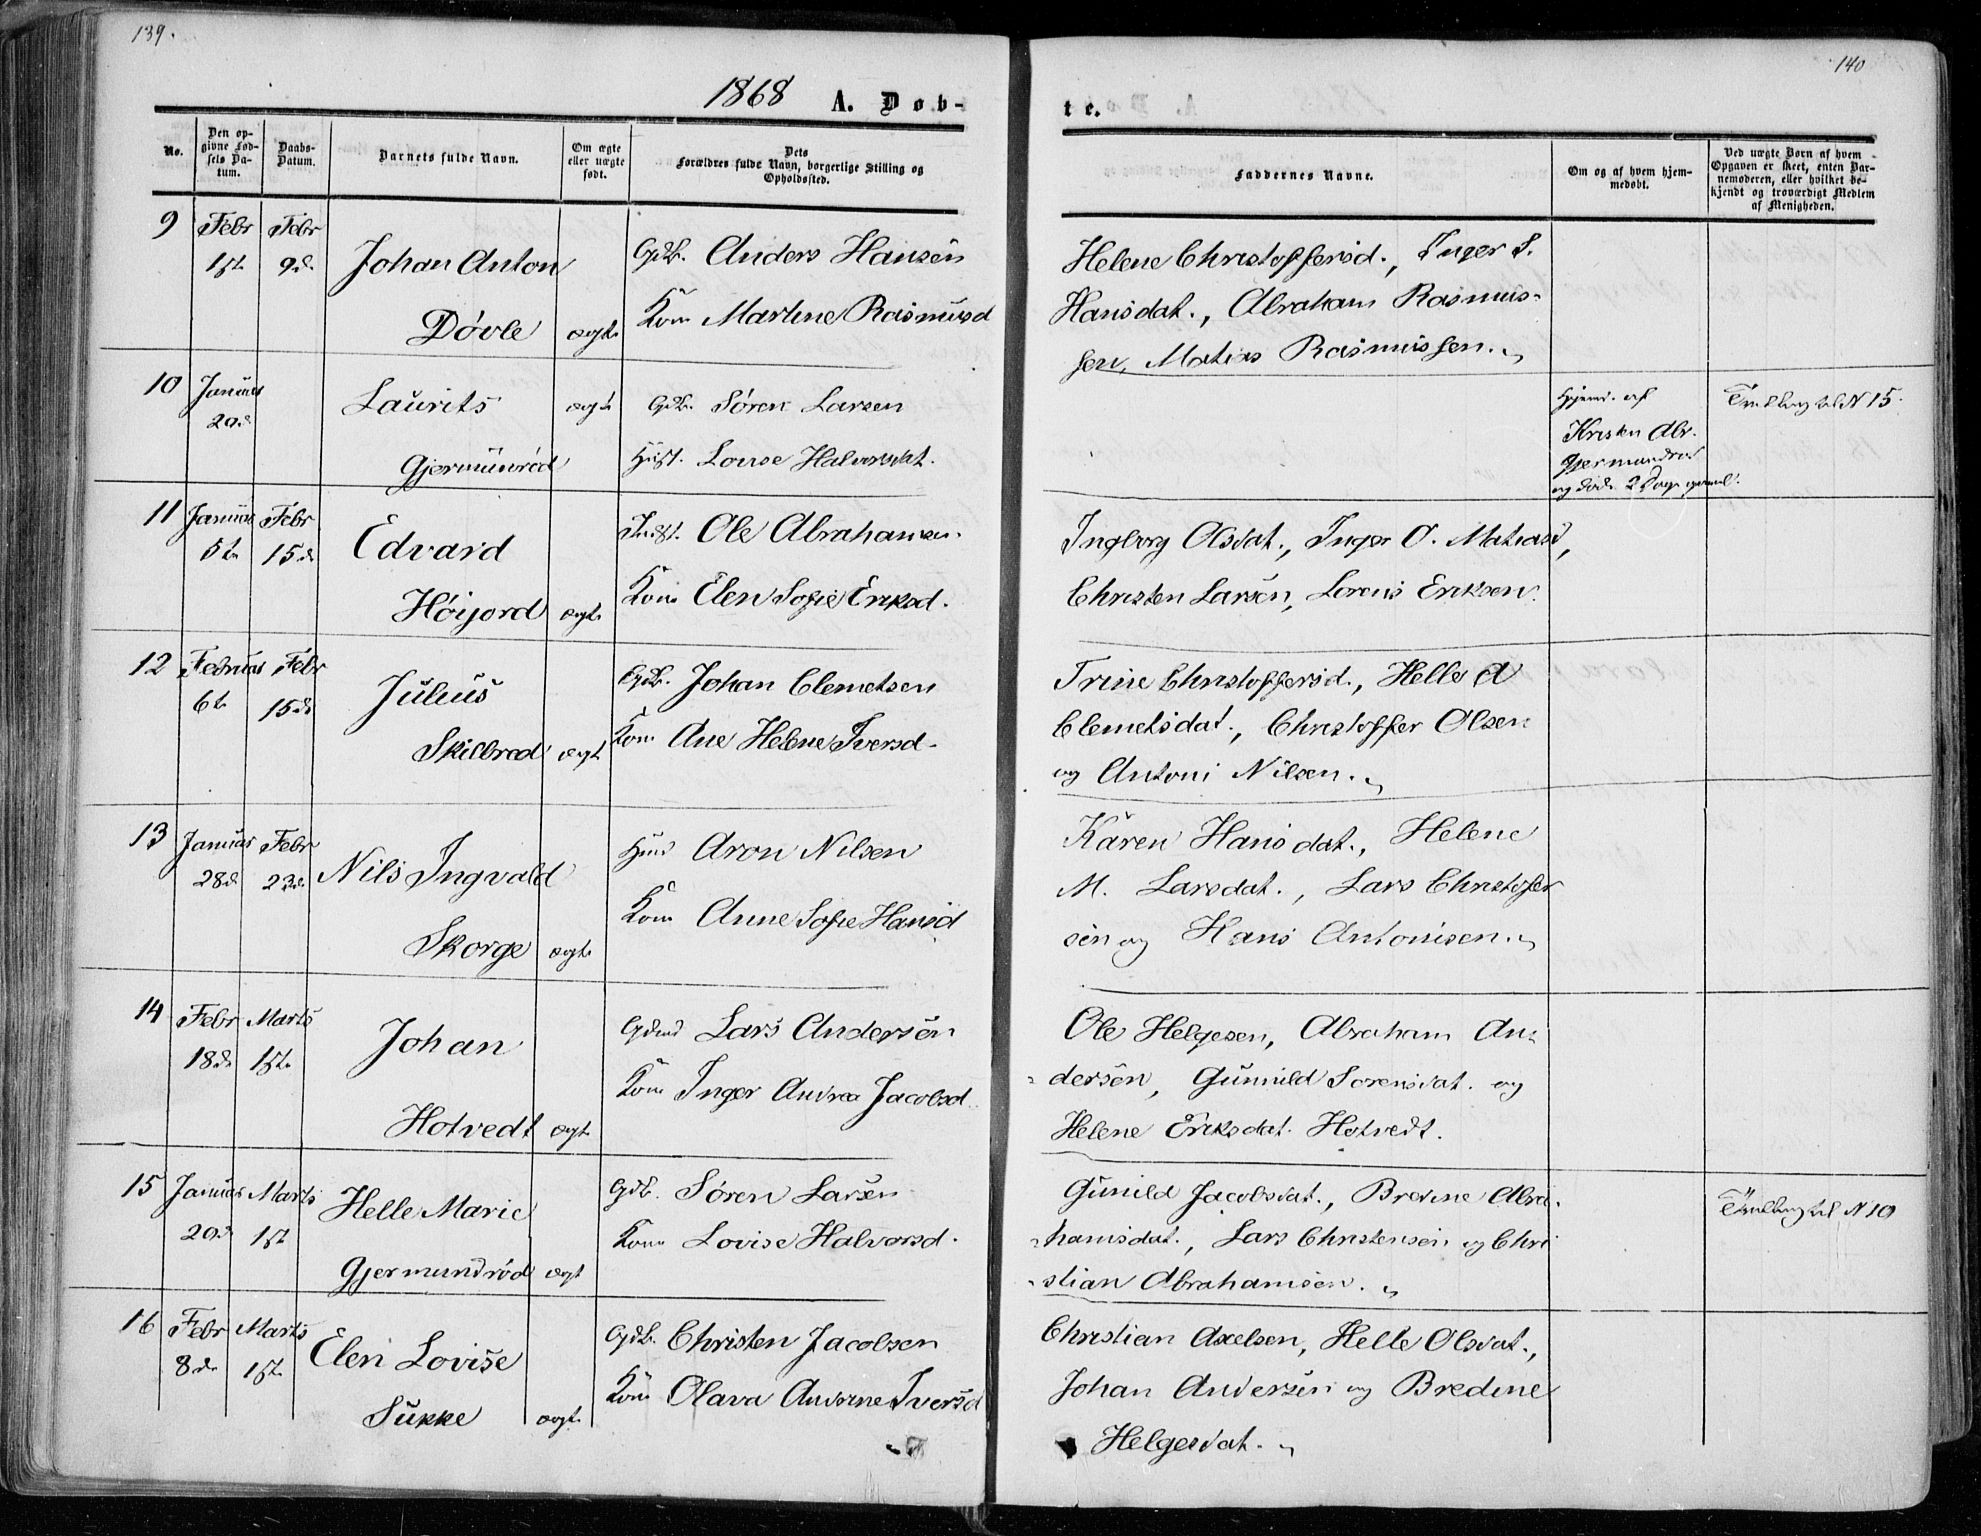 139.
140
1868 A. Døb-
te.
No.
Den op-
givne Fød-
sels Da-
tum.
Daabs-
Datum.
Barnets fulde Navn.
Om ægte
eller uægte
født.
Dets
Forældres fulde Navn, borgerlige Stilling og
Opholdssted.
Faddernes Navne.
Om og af hvem hjem-
medøbt.
Ved uægte Børn af hvem
Opgaven er skeet, enten Bar-
nemoderen, eller hvilket be-
kjendt og troværdigt Medlem
af Menigheden.
9 Febr Febr
1ste 9de Johan Anton
Døvle ægte
Gdb. Anders Hansen
Kone Martine Rasmusd
Helene Christoffersd., Inger S.
Hansdat., Abraham Rasmus-
sen, Matias Rasmussen.
10 Januar
20de Laurits ægte
Gjermundrød
Gdb. Søren Larsen
Hust. Lovise Halvorsdat.
Hjemd. af
Kristen Abr.
Gjermundrød
og døde 2 Dage gammel.
Tvilling til N 15.
11 Januar Febr
5te 15de Edvard
Høijord ægte
Inst. Ole Abrahamsen
Kone Elen Sofie Eriksd.
Ingborg Olsdat., Inger O. Matiasd,
Christen Larsen, Lorens Eriksen.
12 Februar Febr
6te 15de Julius
Skilbred ægte
Gdb. Johan Clemetsen
Kone Ane Helene Iversd.
Trine Christoffersd., Helle A
Clemetsdat., Christoffer Olsen
og Antoni Nilsen.
13 Januar Febr
28de 23de Nils Ingvald
Skorge ægte
Husd Aron Nilsen
Kone Anne Sofie Hansd
Karen Hansdat., Helene
M. Larsdat., Lars Christofer
sen og Hans Antonisen.
14 Febr Marts
18de 1ste Johan
Hotvedt ægte
Gdmd Lars Andersen
Kone Inger Andrea Jacobsd.
Ole Helgesen, Abraham An-
dersen, Gunnild Sorensdat. og
Helene Eriksdat. Hotvedt.
15 Januar Marts
20de 1ste Helle Marie
Gjermundrød ægte
Gdb. Søren Larsen
Kone Lovise Halvorsd.
Gunild Jacobsdat., Bredine Abra-
hamsdat., Lars Christensen og Chri
stian Abrahamsen.
Tvilling til N 10
16 Febr Marts
8de 1ste Elen Lovise
Sukke ægte
Gdb. Christen Jacobsen
Kone Olava Andorine Iversd
Christian Axelsen, Helle Olsdat.,
Johan Andersen og Bredine
Helgesdat.